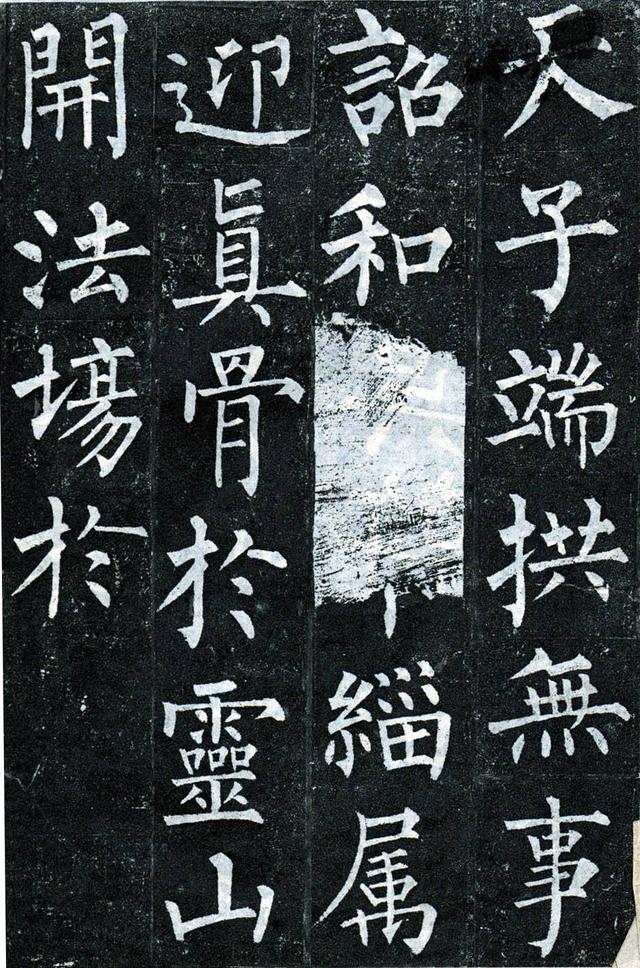 天子端拱無事
詔和緇属
迎眞骨於靈山
開法場於